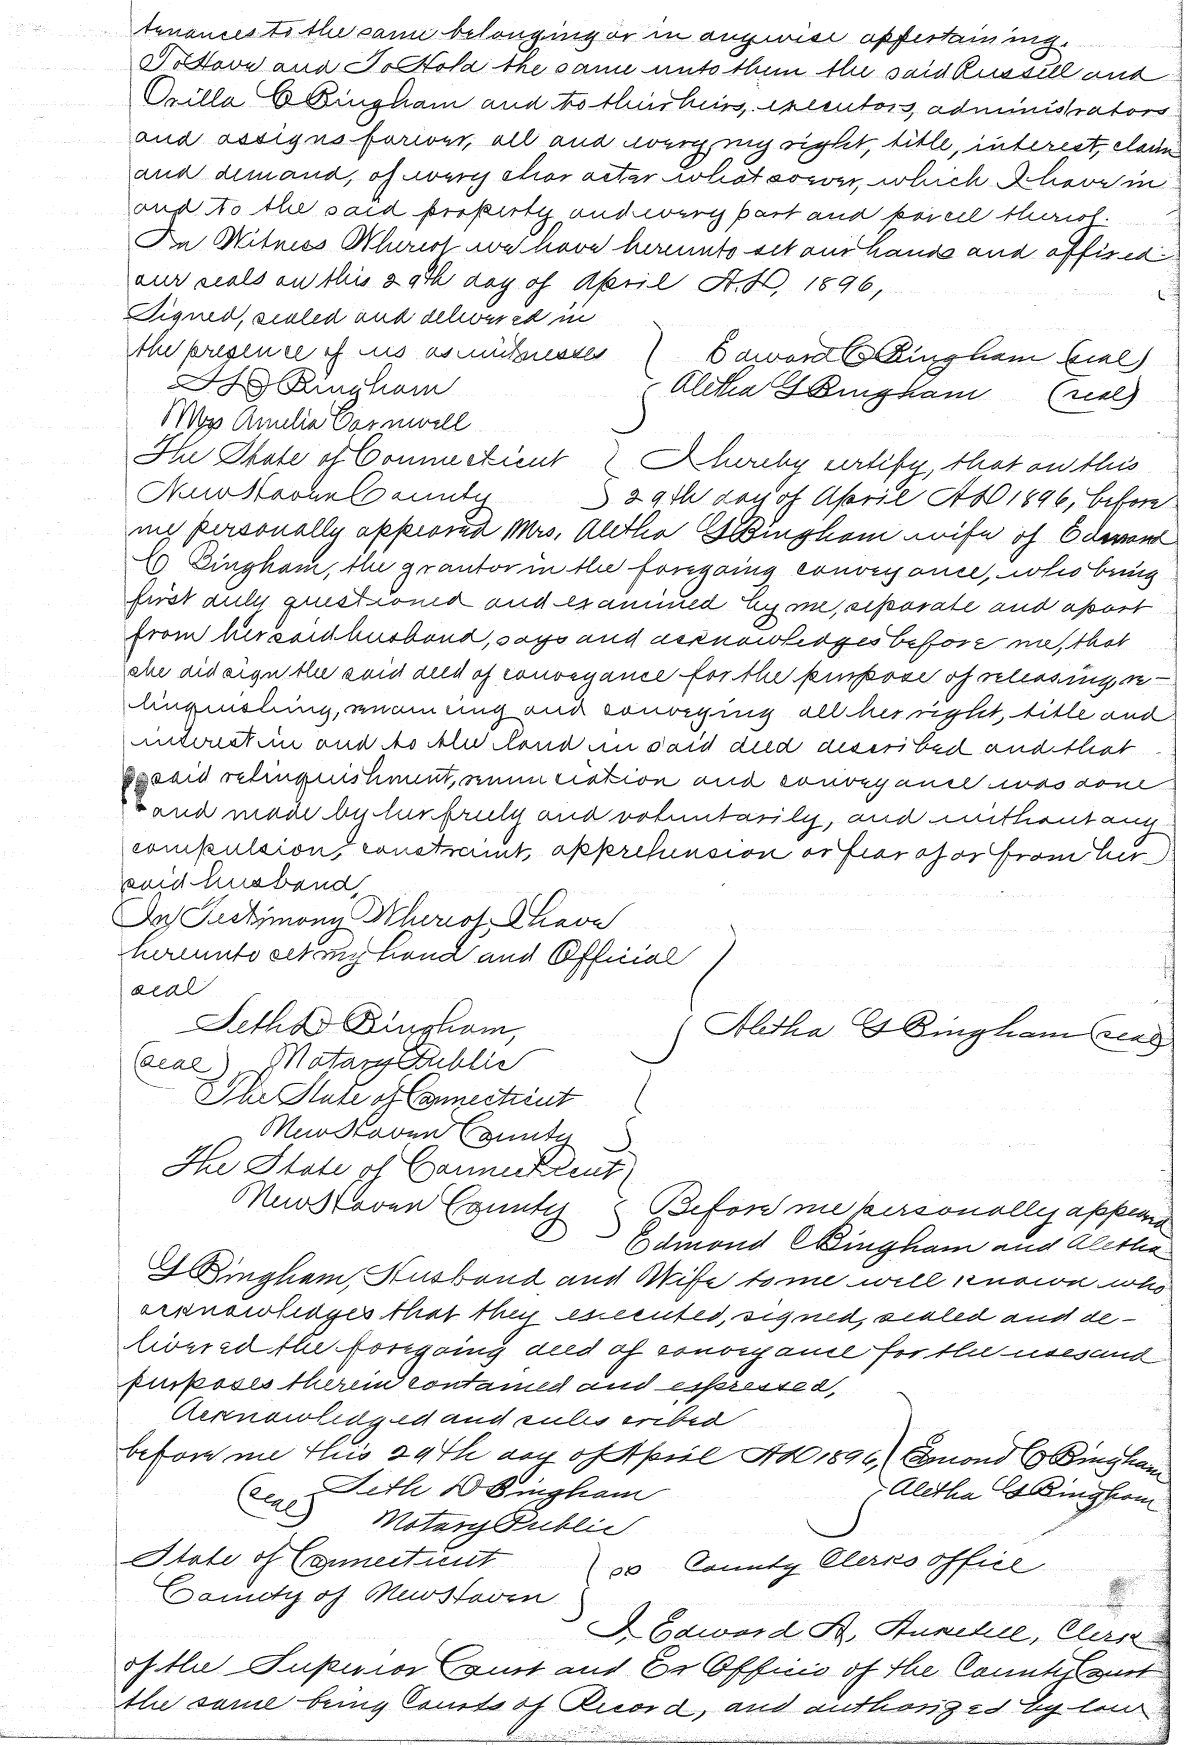 tenances to the same belonging or in anywise appertaining.
To Have and To Hold the same unto them the said Russell and
Orilla C Bingham and to their heirs, executors, administrators
and assigns forever, all and every my right, title, interest, claim
and demand, of every character whatsoever, which I have in
and to the said property and every part and parcel thereof.
In Witness Whereof we have hereunto set our hands and affixed
our seals on this 29th day of April A.D, 1896,
Signed, sealed and delivered in
the presence of us as witnesses } Edward C Bingham (seal)
S D Bingham Aletha G Bingham (seal)
Mrs Amelia Cornwell
The State of Connecticut } I hereby certify, that on this
New Haven County } 29th day of April AD 1896, before
me personally appeared Mrs. Aletha G Bingham wife of Edmond
C Bingham, the grantor in the foregoing conveyance, who being
first duly questioned and examined by me, separate and apart
from her said husband, says and acknowledges before me, that
she did sign the said deed of conveyance for the purpose of releasing, re-
linquishing, renouncing and conveying all her right, title and
interest in and to the land in said deed described and that
said relinquishment, renunciation and conveyance was done
and made by her freely and voluntarily, and without any
compulsion, constraint, apprehension or fear of or from her
said husband,
In Testimony Whereof, I have
hereunto set my hand and Official
seal
Seth D Bingham, } Aletha G Bingham (seal)
(seal) Notary Public
The State of Connecticut
New Haven County }
The State of Connecticut
New Haven County } Before me personally appeared
Edmond C Bingham and Aletha
G Bingham, Husband and Wife to me well known who
acknowledges that they executed, signed, sealed and de-
livered the foregoing deed of conveyance for the uses and
purposes therein contained and expressed,
Acknowledged and subscribed
before me this 29th day of April AD 1896, } Edmond C Bingham
(seal) Seth D Bingham Aletha G Bingham
Notary Public
State of Connecticut } ss County Clerks office
County of New Haven
I, Edward A, Anketell, Clerk
of the Superior Court and Ex Officio of the County Court
the same being Courts of Record, and authorized by law